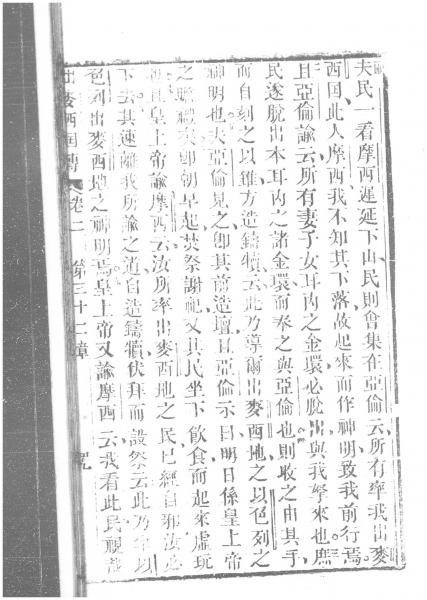 夫民一看摩西遲延下山民則會集在亞倫云所有率我出麥
西國此人摩西我不知其下落故起來而作神明致我前行焉
且亞倫諭云所有妻子女耳內之金環必脫出與我拏來也庶
民遂脫出本耳內之諸金環而奉之與亞倫也則收之由其手
而自刻之以錐方造鑄犢云此乃導爾出麥西地之以色列之
神明也夫亞倫見之卽其前造壇且亞倫示曰明日係皇上帝
之瞻禮矣卽朝早起焚祭謝祀又其民坐下飲食而起來虛玩
且皇上帝諭摩西云汝所率出麥西地之民已經自邪汝必
下去其速離我所諭之道自造鑄犢伏拜而設祭云此乃率以
色列出麥西地之神明焉皇上帝又諭摩西云我看此民
出麥西國傳 卷二 第三十二章